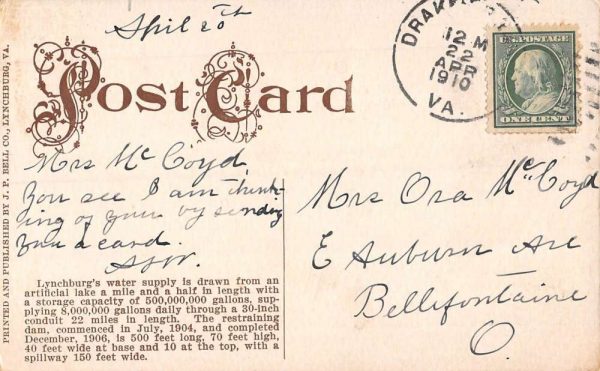 April 20th
Post Card
PRINTED AND PUBLISHED BY J. P. BELL CO., LYNCHBURG, VA.
Mrs McCoyd,
You see I am think-
ing of you by sending
you a card.
Lynchburg's water supply is drawn from an
artificial lake a mile and a half in length with
a storage capacity of 500,000,000 gallons, sup-
plying 8,000,000 gallons daily through a 30-inch
conduit 22 miles in length. The restraining
dam, commenced in July, 1904, and completed
December, 1906, is 500 feet long, 70 feet high,
40 feet wide at base and 10 at the top, with a
spillway 150 feet wide.
12 M
22
APR
1910
VA.
U.S. POSTAGE
ONE CENT
Mrs Ora McCoyd
E Auburn Ave
Bellefontaine
O.